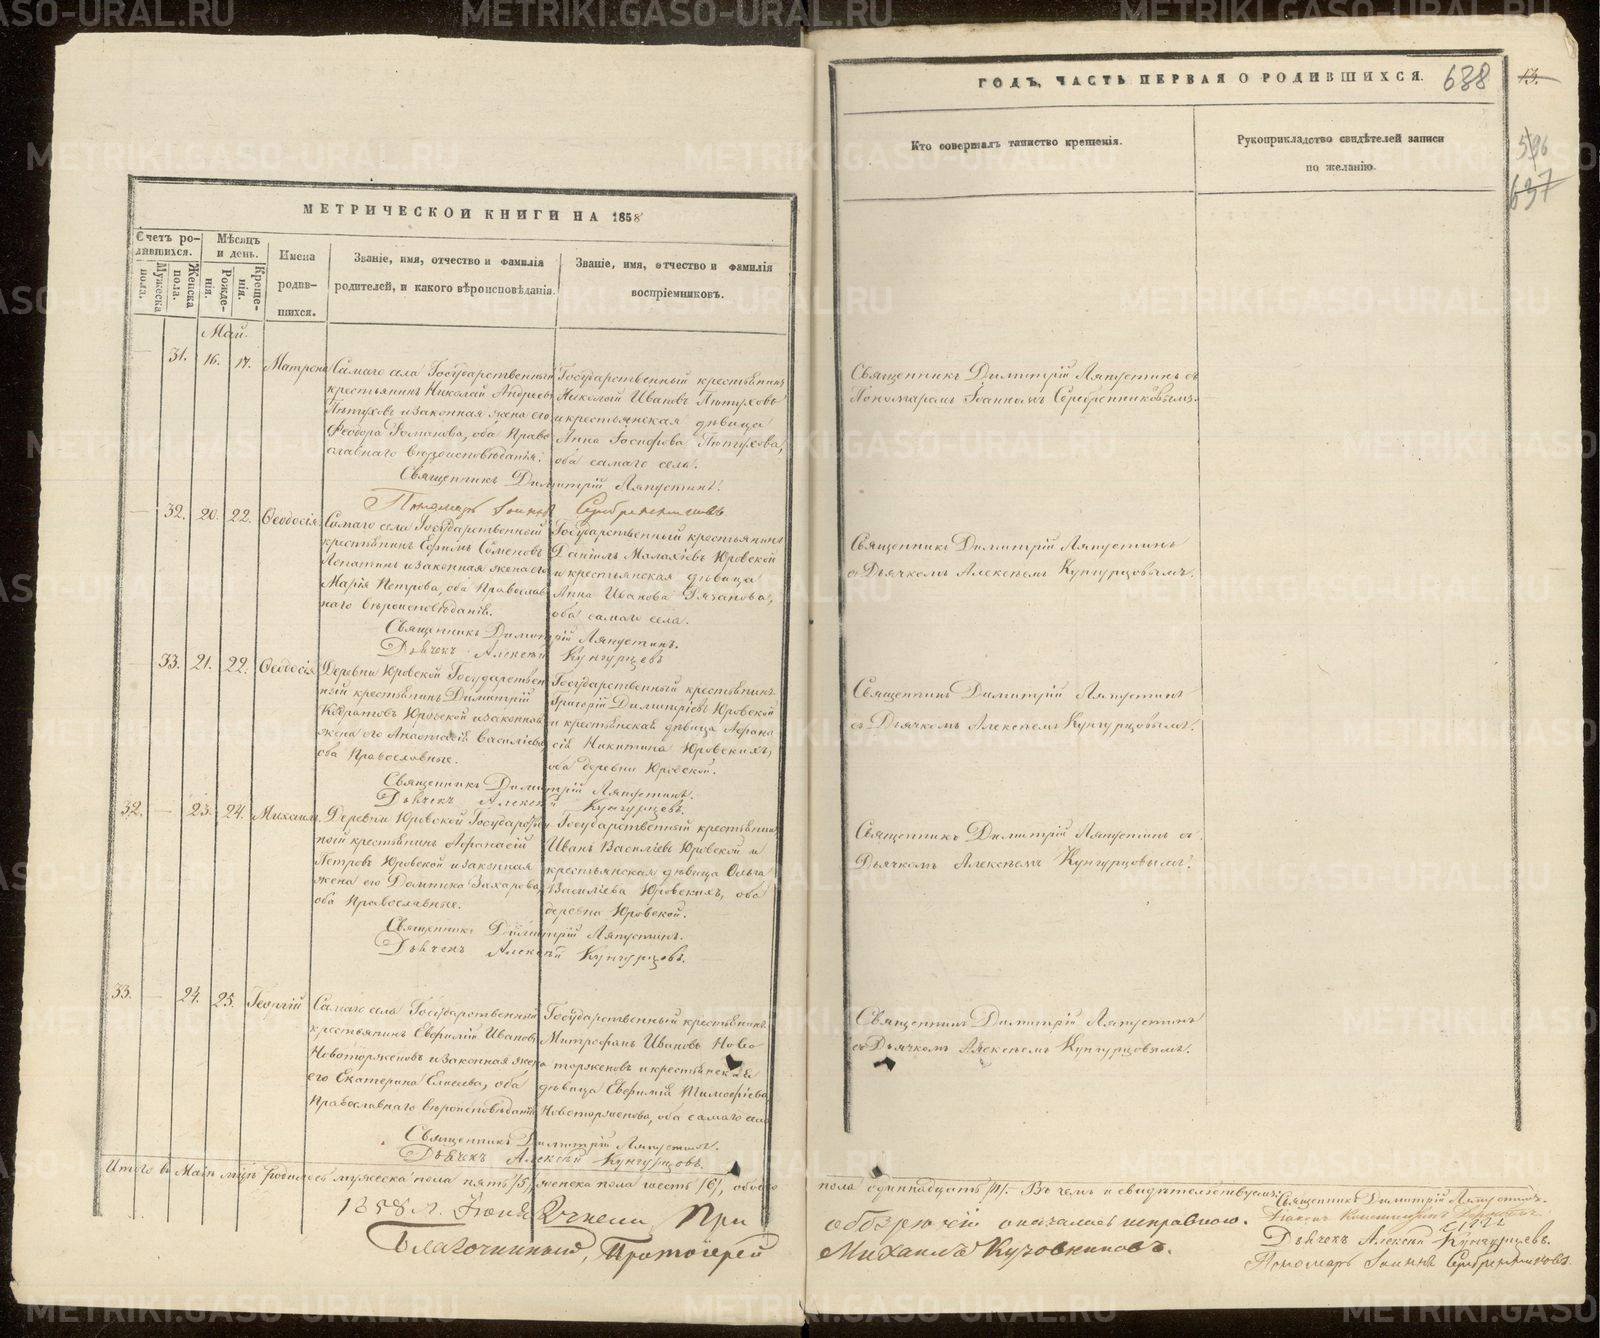 МЕТРИЧЕСКОЙ КНИГИ НА 1858
Счетъ ро-
дившихся.
Мужеска пола.
Женска пола.
Мѣсяцъ
и день.
Рожде-
нія.
Креще-
нія.
Имена
родив-
шихся.
Званіе, имя, отчество и фамилія
родителей, и какого вѣроисповѣданія.
Званіе, имя, отчество и фамилія
воспріемниковъ.
Май.
31. 16. 17. Матрона
Самаго села Государственный
крестьянинъ Николай Андреевъ
Пѣтуховъ и законная жена его
Феодора Романова, оба Право
славнаго вѣроисповѣданія.
Государственный крестьянинъ
Николай Ивановъ Пѣтуховъ
и крестьянская дѣвица
Анна Іосифова Пѣтухова,
оба самаго села.
Священникъ Димитрій Ляпустинъ.
Пономарь Іоаннъ Серебренниковъ
32. 20. 22. Ѳеодосія
Самаго села Государственной
крестьянинъ Ефимъ Семеновъ
Лопатинъ и законная жена его
Марія Петрова, оба Православ
наго вѣроисповѣданія.
Государственный крестьянинъ
Даніилъ Малахіевъ Юровской
и крестьянская дѣвица
Анна Иванова
оба самаго села.
Священникъ Димитрій Ляпустинъ.
Дьячекъ Алексѣй Кунгурцевъ
33. 21. 22. Ѳеодосія
Деревни Юровской Государствен
ный крестьянинъ Димитрій
Кодратовъ Юровской и законная
жена его Анастасія Василіева,
оба Православные.
Государственный крестьянинъ
Григорій Димитріевъ Юровской
и крестьянская дѣвица Афана
сія Никитина Юровскихъ,
оба деревни Юровской.
Священникъ Димитрій Ляпустинъ.
Дьячекъ Алексѣй Кунгурцевъ.
32. 23. 24. Михаилъ
Деревни Юровской Государствен
ной крестьянинъ Афанасій
Петровъ Юровской и законная
жена его Домника Захарова,
оба Православные.
Государственный крестьянинъ
Иванъ Василіевъ Юровской и
крестьянская дѣвица Ольга
Василіева Юровскихъ, оба
деревни Юровской.
Священникъ Димитрій Ляпустинъ.
Дьячекъ Алексѣй Кунгурцовъ.
33. 24. 25. Георгій
Самаго села Государственный
крестьянинъ Евфимій Ивановъ
Новоторженовъ и законная жена
его Екатерина Елисеева, оба
Православнаго вѣроисповѣданія
Государственный крестьянинъ
Митрофанъ Ивановъ Ново
торженовъ и крестьянская
дѣвица Евфимія Тимофіева
Новоторженова, оба самаго села
Священникъ Димитрій Ляпустинъ.
Дьячекъ Алексѣй Кунгурцовъ.
Итого въ Маѣ м͠цѣ родилось мужеска пола пять /5/, женска пола шесть /6/, обоего
1858 г. Іюня 2 при
Благочинный, Протоіерей
ГОДЪ, ЧАСТЬ ПЕРВАЯ О РОДИВШИХСЯ.
638
13.
596
637
Кто совершалъ таинство крещенія.
Рукоприкладство свидѣтелей записи
по желанію.
Священникъ Димитрій Ляпустинъ съ
Пономаремъ Іоанномъ Серебренниковымъ.
Священникъ Димитрій Ляпустинъ
съ Дьячкомъ Алексѣемъ Кунгурцовымъ.
Священникъ Димитрій Ляпустинъ
съ Дьячкомъ Алексѣемъ Кунгурцовымъ.
Священникъ Димитрій Ляпустинъ съ
Дьячкомъ Алексѣемъ Кунгурцовымъ.
Священникъ Димитрій Ляпустинъ
съ Дьячкомъ Алексѣемъ Кунгурцовымъ.
пола одиннадцать /11/. Въ чемъ и свидѣтельствуемъ:
Священникъ Димитрій Ляпустинъ.
обозрѣніи оказалась исправною.
Михаилъ Кузовниковъ.
Діаконъ Константинъ
Дьячекъ Алексѣй Кунгурцевъ.
Пономарь Іоаннъ Серебренниковъ
METRIKI.GASO-URAL.RU